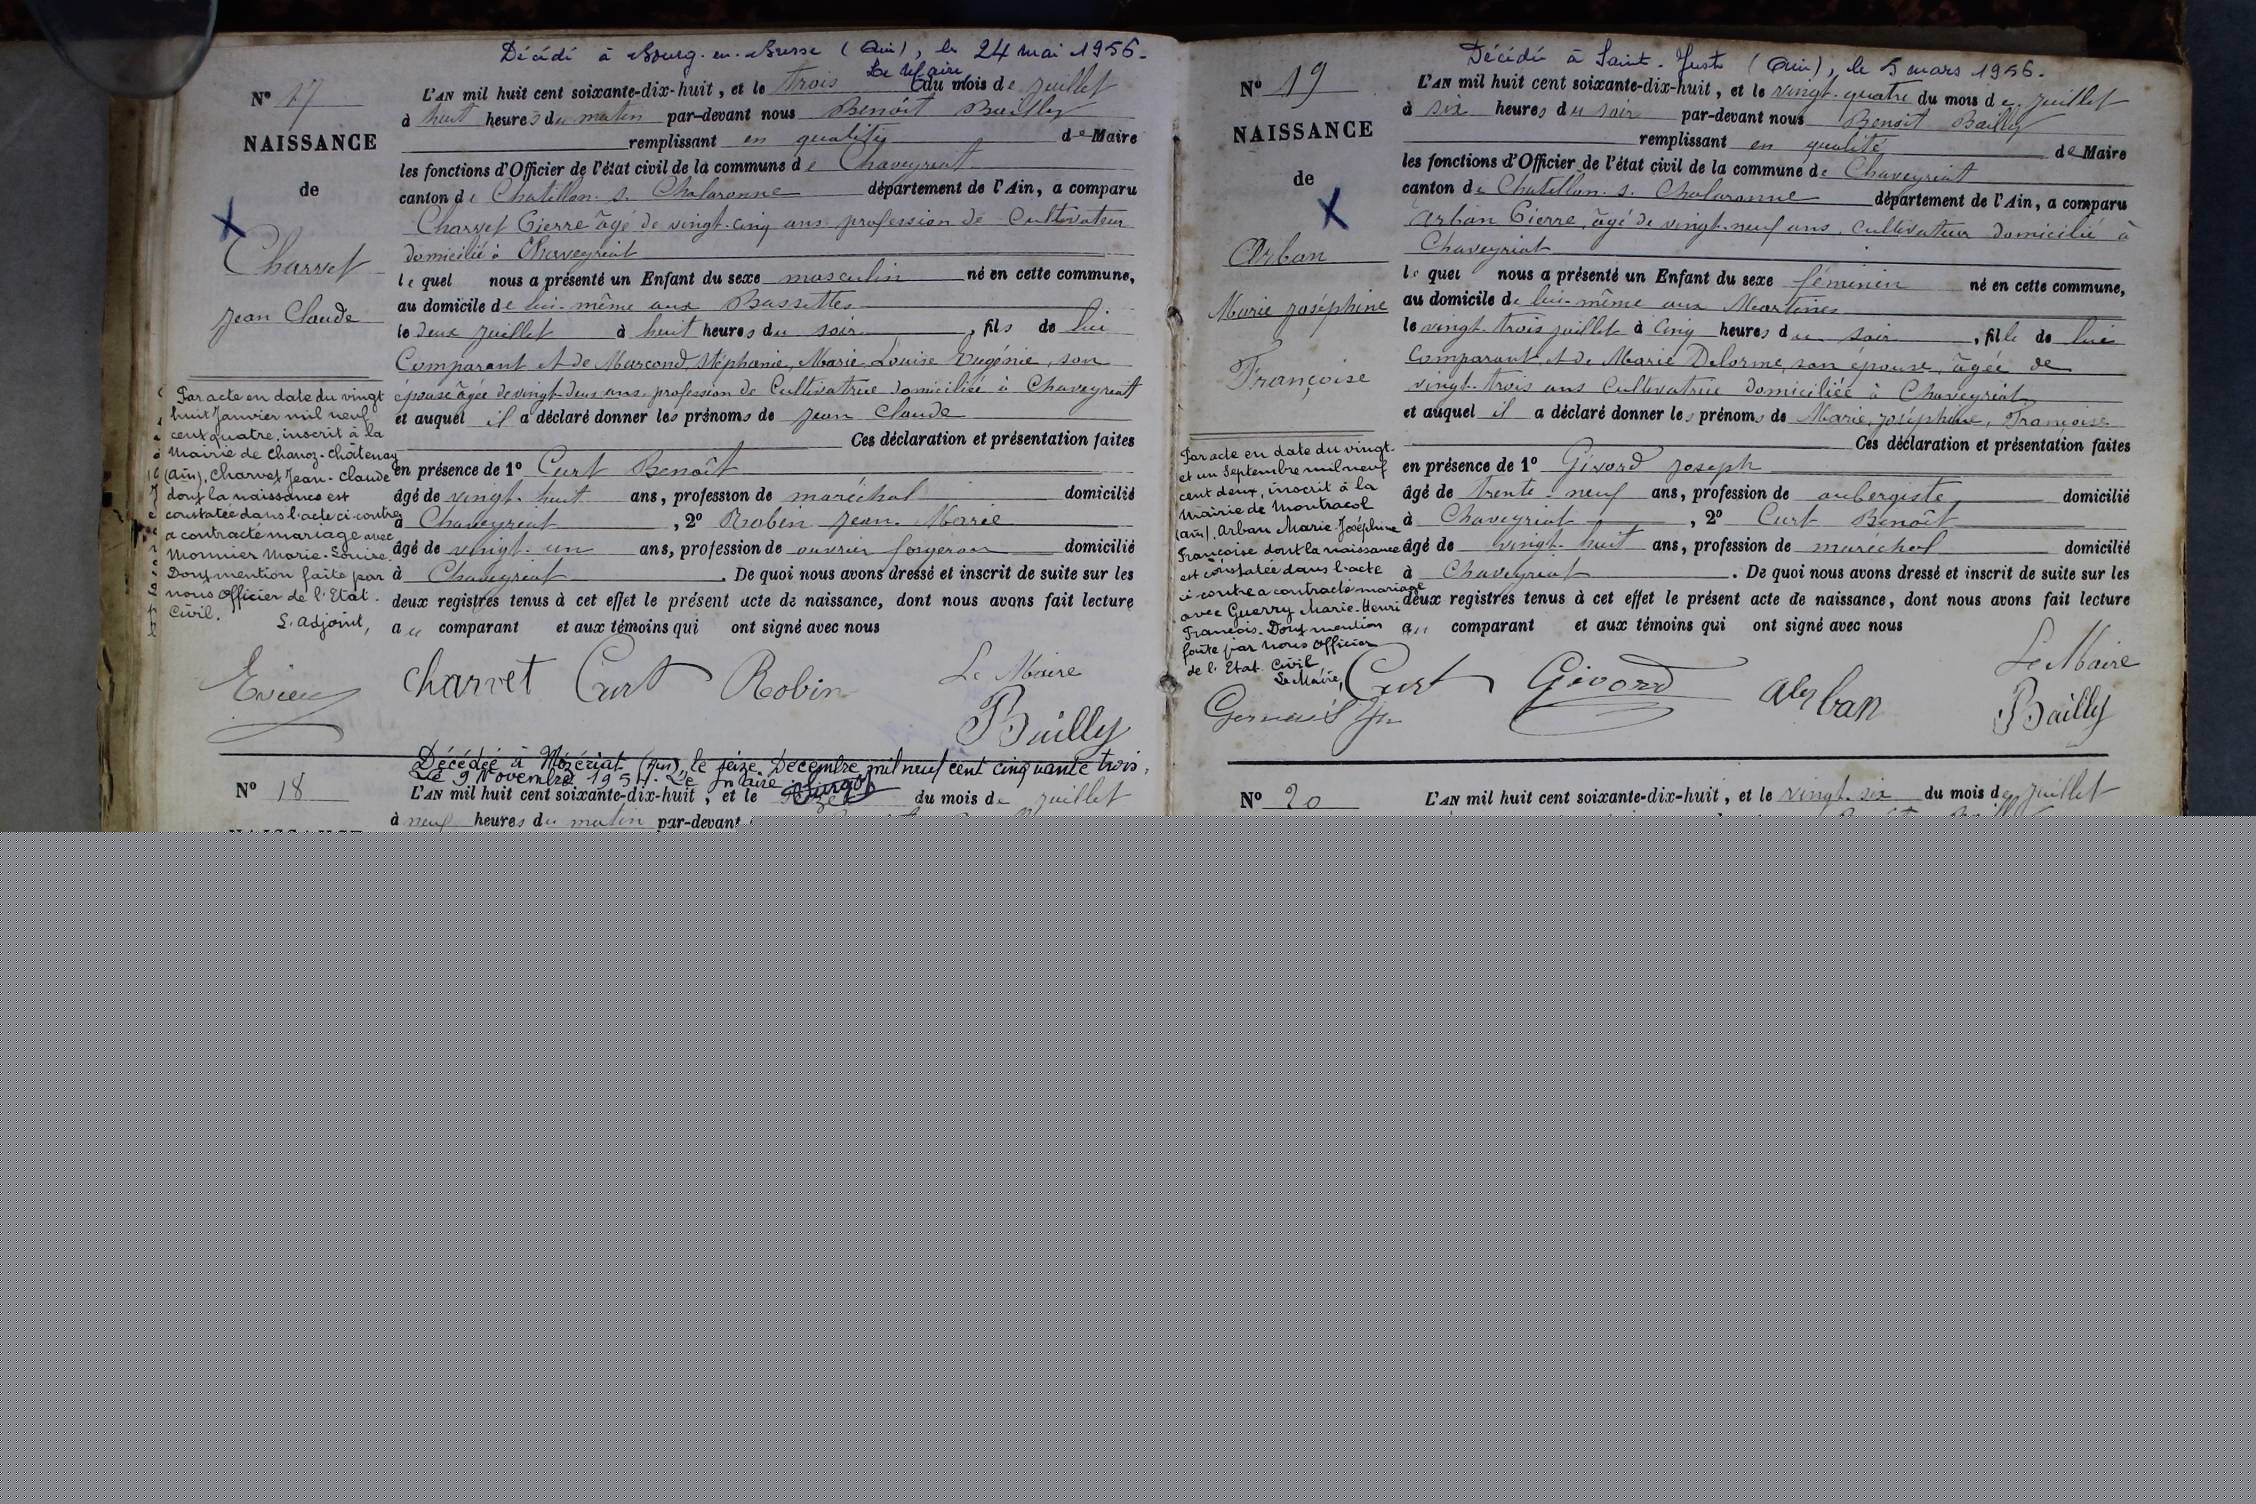 Décédé à Bourg-en-Bresse (Ain), le 24 mai 1956.
Le Maire
Nº 17
NAISSANCE
de
Charvet
Jean Claude
L'AN mil huit cent soixante-dix-huit, et le trois du mois de juillet
à huit heures du matin par-devant nous Benoît Bailly
remplissant en qualité de Maire
les fonctions d'Officier de l'état civil de la commune de Chaveyriat
canton de Chatillon s. Chalaronne département de l'Ain, a comparu
Charvet Pierre âgé de vingt-cinq ans profession de Cultivateur
domicilié à Chaveyriat
lequel nous a présenté un Enfant du sexe masculin né en cette commune,
au domicile de lui-même aux Bassettes
le deux juillet à huit heures du soir, fils de lui
Comparant et de Marcond Stéphanie, Marie Louise Eugénie, son
épouse âgée de vingt-deux ans profession de Cultivatrice domiciliée à Chaveyriat
et auquel il a déclaré donner les prénoms de Jean Claude
Ces déclaration et présentation faites
en présence de 1º Curt Benoît
âgé de vingt-huit ans, profession de maréchal domicilié
à Chaveyriat, 2º Robin Jean-Marie
âgé de vingt-un ans, profession de ouvrier forgeron domicilié
à Chaveyriat. De quoi nous avons dressé et inscrit de suite sur les
deux registres tenus à cet effet le présent acte de naissance, dont nous avons fait lecture
au comparant et aux témoins qui ont signé avec nous
Par acte en date du vingt
huit Janvier mil neuf
cent quatre, inscrit à la
Mairie de Chanoz-Châtenay
(Ain), Charvet Jean-Claude
dont la naissance est
constatée dans l'acte ci-contre
a contracté mariage avec
Monnier Marie-Louise.
Dont mention faite par
nous Officier de l'Etat
Civil.
L'adjoint,
charvet Curt Robin Le Maire
Bailly
Décédée à Mézériat (Ain), le seize Décembre mil neuf cent cinquante trois.
Le 9 Novembre 1954. Le Maire
Nº 18
L'AN mil huit cent soixante-dix-huit, et le du mois de juillet
à neuf heures du matin par-devant
Décédée à Saint-Just (Ain), le 5 mars 1956.
Nº 19
NAISSANCE
de
Arban
Marie Joséphine
Françoise
L'AN mil huit cent soixante-dix-huit, et le vingt-quatre du mois de juillet
à six heures du soir par-devant nous Benoît Bailly
remplissant en qualité de Maire
les fonctions d'Officier de l'état civil de la commune de Chaveyriat
canton de Chatillon s. Chalaronne département de l'Ain, a comparu
Arban Pierre, âgé de vingt-neuf ans, cultivateur domicilié à
Chaveyriat
lequel nous a présenté un Enfant du sexe féminin né en cette commune,
au domicile de lui-même aux Martines
le vingt-trois juillet à cinq heures du soir, fille de lui
Comparant et de Marie Delorme, son épouse, âgée de
vingt-trois ans Cultivatrice domiciliée à Chaveyriat
et auquel il a déclaré donner les prénoms de Marie, Joséphine, Françoise
Ces déclaration et présentation faites
en présence de 1º Givord Joseph
âgé de trente-neuf ans, profession de aubergiste domicilié
à Chaveyriat, 2º Curt Benoît
âgé de vingt-huit ans, profession de maréchal domicilié
à Chaveyriat. De quoi nous avons dressé et inscrit de suite sur les
deux registres tenus à cet effet le présent acte de naissance, dont nous avons fait lecture
au comparant et aux témoins qui ont signé avec nous
Par acte en date du vingt-
et un Septembre mil neuf
cent deux, inscrit à la
Mairie de Montracol
(Ain), Arban Marie-Joséphine
Françoise dont la naissance
est constatée dans l'acte
ci-contre a contracté mariage
avec Guerry Marie-Henri
François. Dont mention
faite par nous Officier
de l'Etat Civil
Le Maire,
Curt Givord Arban Le Maire
Bailly
Nº 20
L'AN mil huit cent soixante-dix-huit, et le vingt-six du mois de juillet